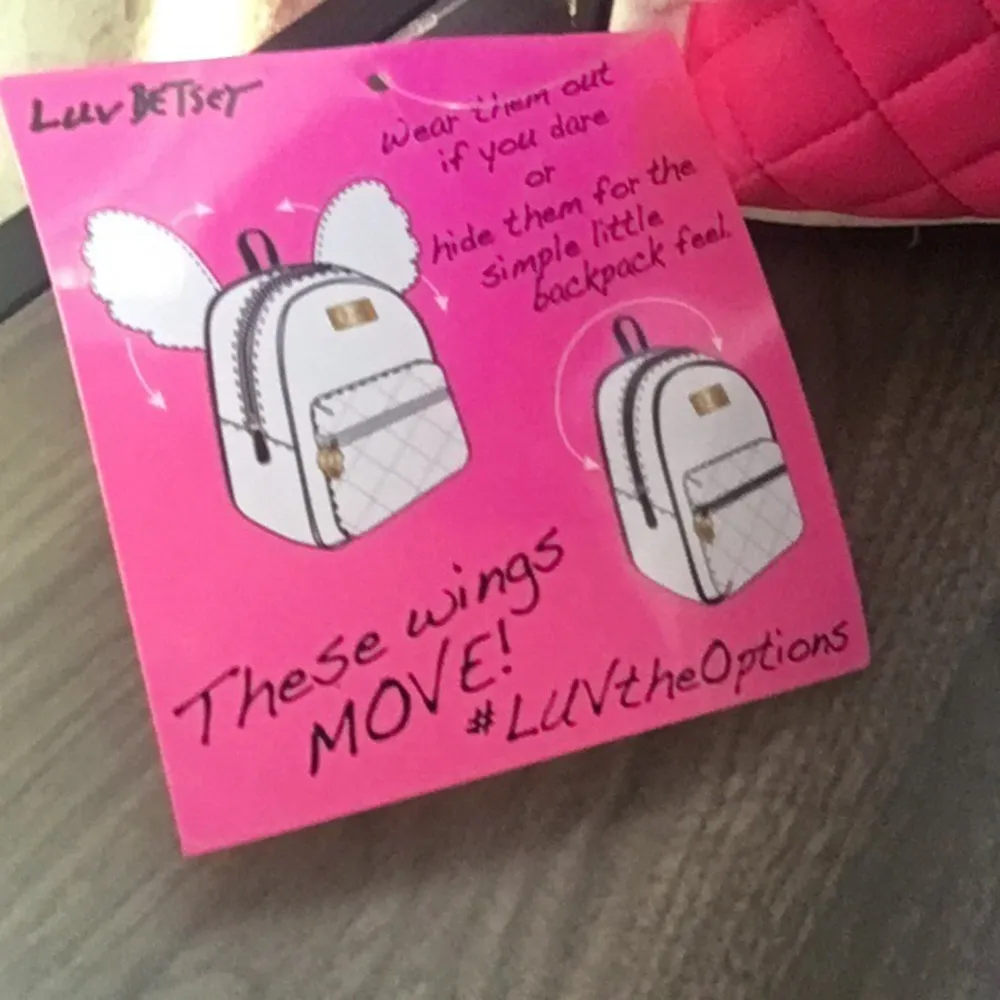 Luv BETSEY
Wear them out
if you dare
or
hide them for the
simple little
backpack feel.
These wings
MOVE!
#LUVtheOptions